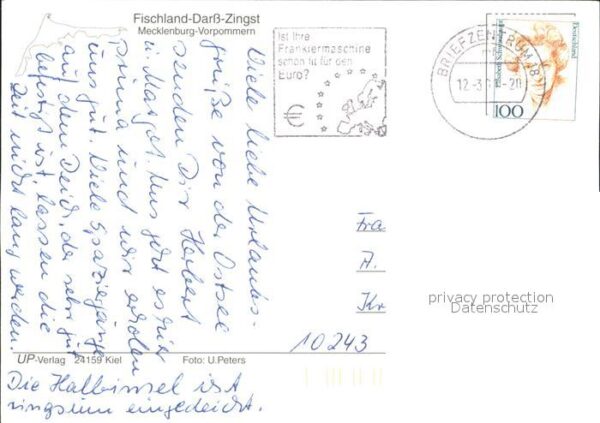 Fischland-Darß-Zingst
Mecklenburg-Vorpommern
Viele liebe Urlaubs-
grüße von der Ostsee
senden Dir Herbert
u. Margot. Uns geht es hier
prima und wir erholen
uns gut. Viele Spaziergänge
auf dem Deich, der sehr gut
befestigt ist, lassen die
Zeit nicht lang werden.
Die Halbinsel ist
ringsum eingedeicht.
UP-Verlag 24159 Kiel Foto: U.Peters
Ist Ihre
Frankiermaschine
schon fit für den
Euro?
€
BRIEFZENTRUM 18
12.-3
-20
Deutschland
100
Fra
A.
Kr
10243
privacy protection
Datenschutz